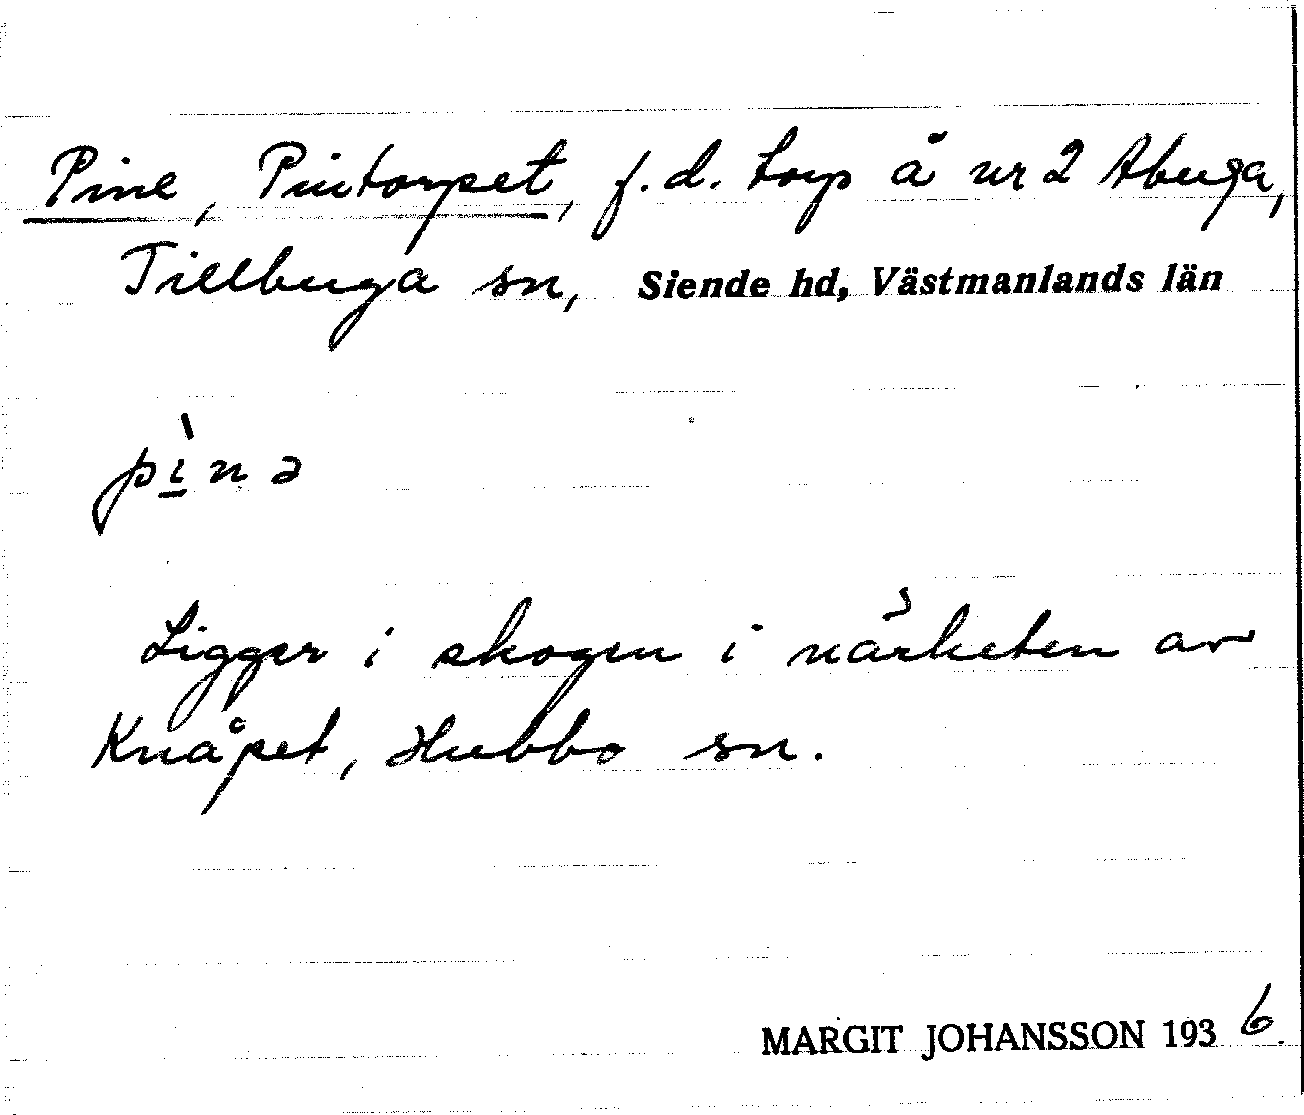 Pine, Pintorpet, f.d. torp å nr 2 Abuga,
Tillbuga sn, Siende hd, Västmanlands län
pìnə
Ligger i skogen i närheten av
Knåpet, Hubbo sn.
MARGIT JOHANSSON 1936.